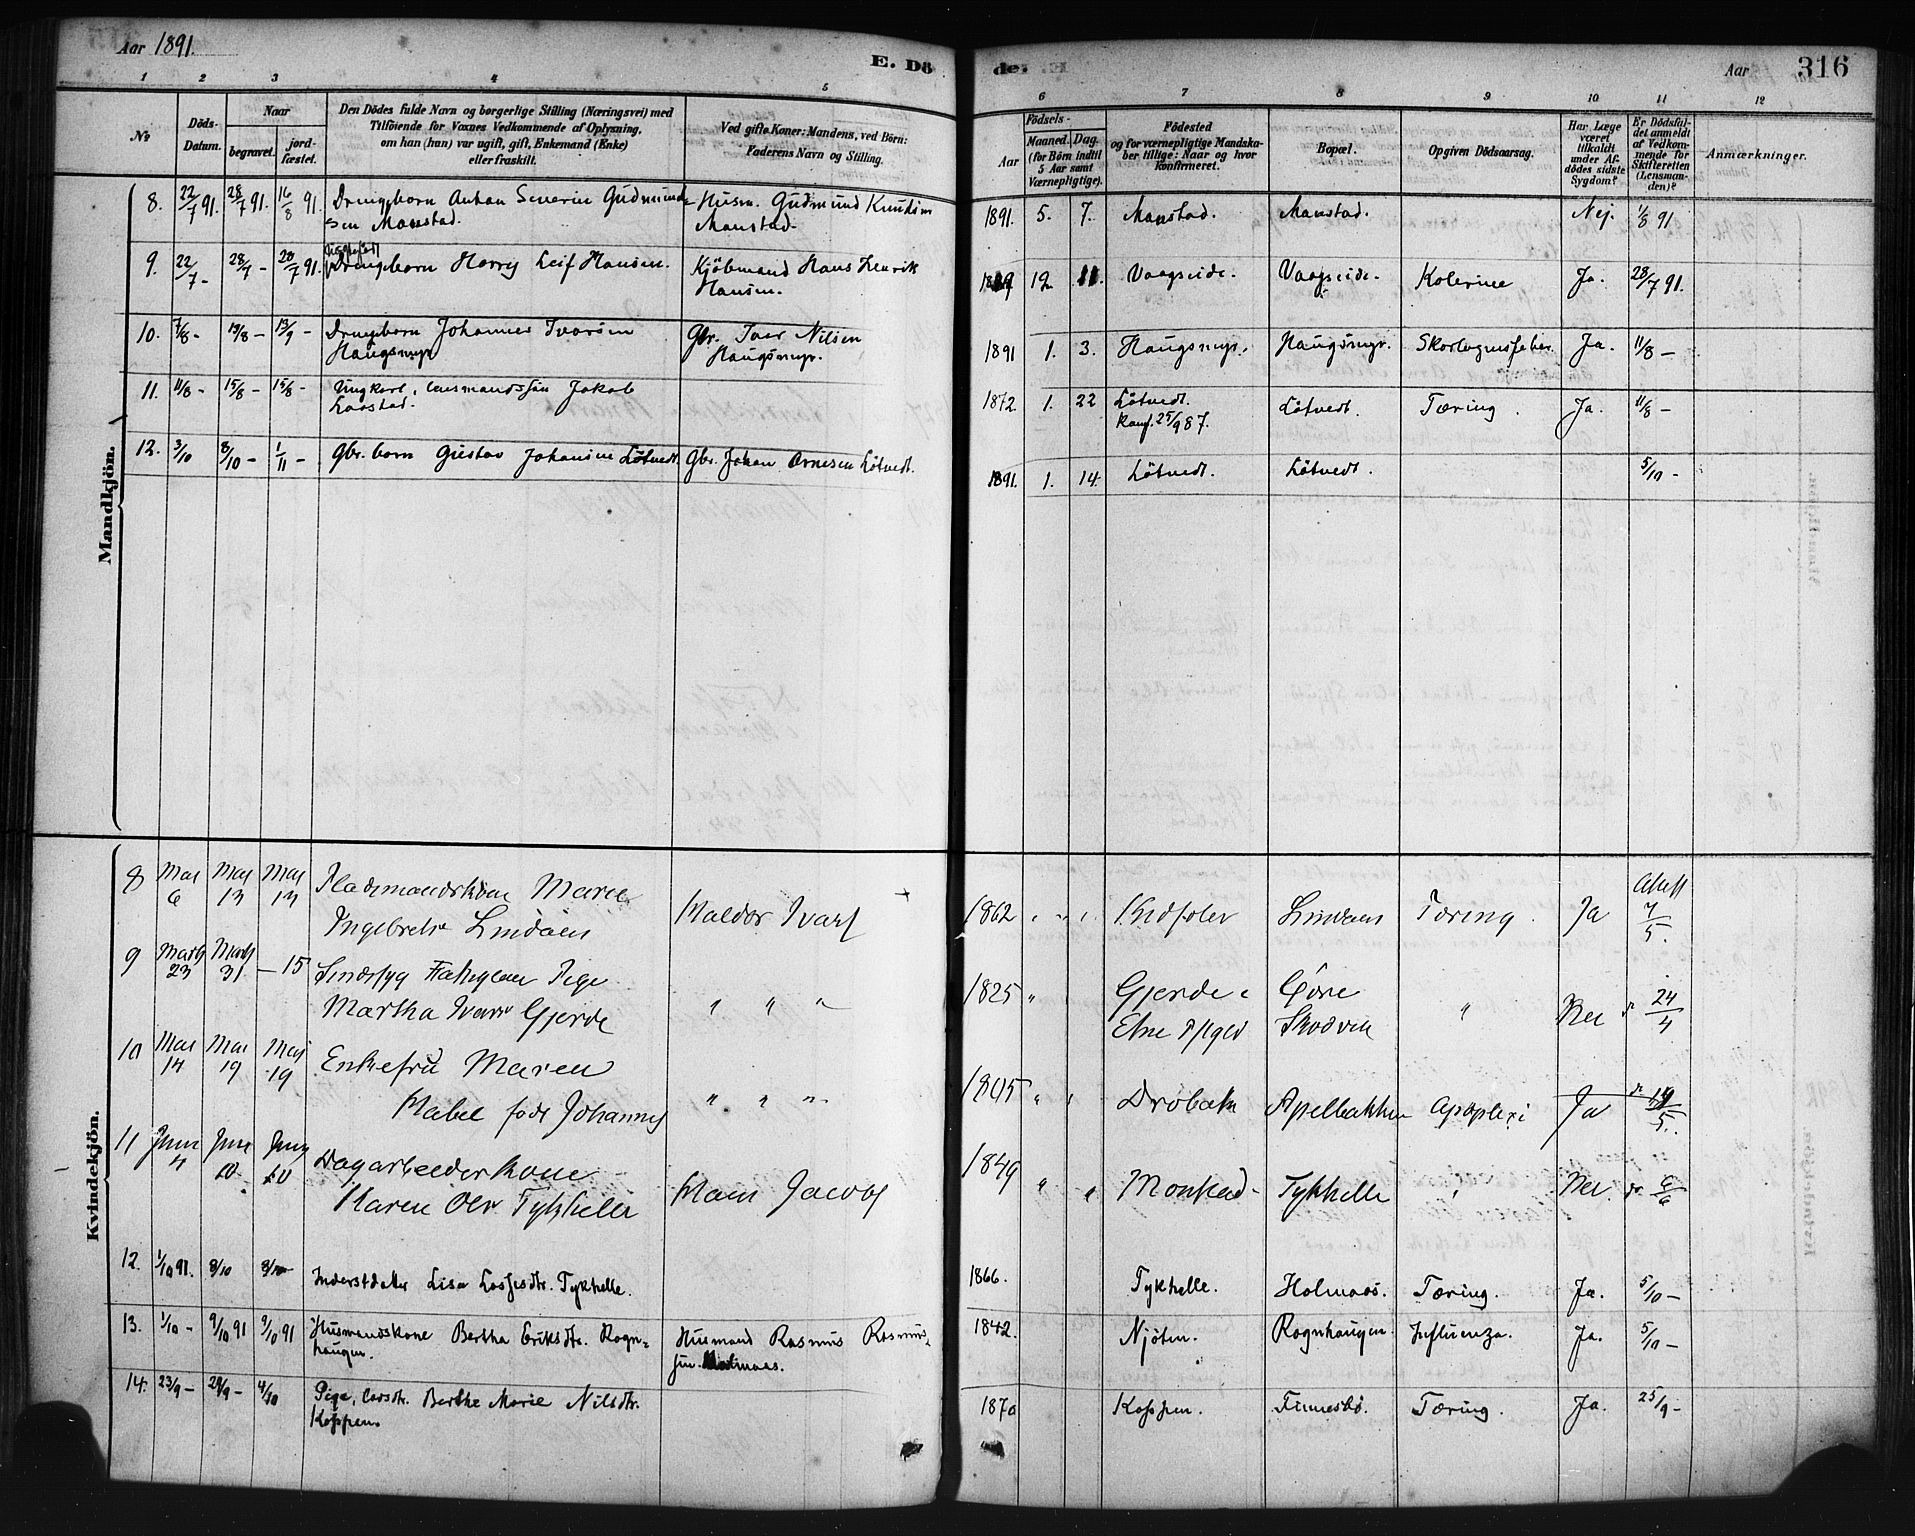 Aar 1891.
E. Dö
de.
Aar
316
1 2 3 4 5 6 7 8 9 10 11 12
No
Döds-
Datum.
Naar
begravet.
jord-
fæstet.
Den Dödes fulde Navn og borgerlige Stilling (Næringsvei) med
Tilföiende for Voxnes Vedkommende af Oplysning,
om han (hun) var ugift, gift, Enkemand (Enke)
eller fraskilt.
Ved gifte Koner: Mandens, ved Börn:
Faderens Navn og Stilling.
Födsels-
Aar
Maaned. Dag.
(for Börn indtil
5 Aar samt
Værnepligtige).
Födested
og for værnepligtige Mandska-
ber tillige: Naar og hvor
konfirmeret.
Bopæl.
Opgiven Dödsaarsag.
Har Læge
været
tilkaldt
under Af-
dödes sidste
Sygdom?
Er Dödsfal-
det anmeldt
af Vedkom-
mende for
Skifteretten
(Lensman-
den)?
Anmærkninger.
Mandkjön.
8. 22/7 91. 28/7 91. 16/8 91. Drengebarn Anton Severin Gudmund- Husm. Gudmund Knudsen 1891. 5. 7. Manstad. Manstad. Nej. 1/8 91
sen Manstad. Manstad.
9. 22/7 - 28/7 - 28/7 91. Drengebarn Harry Leif Hansen. Kjöbmand Hans Henrik 12 11. Vaagseide. Vaagseide. Kolerine Ja. 28/7 91.
Hansen.
10. 7/8 - 13/8 - 13/9 - Drengebarn Johannes Ivarsen Gbr. Ivar Nilsen 1891 1. 3. Haugsmyr. Haugsmyr. Ja. 11/8 -
Haugsmyr Haugsmyr.
11. 11/8 - 15/8 - 15/8 - Ungkarl, lensmandssön Jakob 1872. 1. 22 Lötvedt. Lötvedt. Tæring. Ja. 11/8 -
Konf. 25/9 87.
12. 3/10 8/10 - 1/11 - Gbr. barn Gustav Johansen Lötvedt. Gbr. Johan Arnesen Lötvedt. 1891. 1. 14. Lötvedt. Lötvedt. 5/10 -
Kvindekjön.
8 Mai 6 Mai 13 Mai 13 Pladsmandskone Maren Haldor Ivars 1862 Tæring. Ja 7/5.
Ingebrets Lindåen
9 Marts 23 Marts 31 - 15 Sindssyg Fattiglem Pige 1825 Gjerde i Nei 24/4
Martha Ivars Gjerde " " " Skodvin "
10 Mai 14 Mai 19 Mai 19 Enkefru Maren 1805 Dröbak Apelbakken Apoplexi Ja 19/5.
Habel född Johannes " " "
11 Juni 4 Juni 10 Juni 10 Dagarbeiderkone 1849
Karen Ols Tykhelle Hans Jacobs " " Monstad Tykhelle Nei do 6/6
12. 1/10 91. 8/10 8/10 Inderstdatter Lisa Lassesdtr. Tykhelle. 1866. Tykhelle. Holmaas. Tæring. Ja. 5/10 -
13. 1/10 - 9/10 91 9/10 91 Husmandskone Bertha Eriksdtr. Rogn- Husmand Rasmus Rasmus- 1842. Njöten. Rognhaugen. Influenza. Ja. 5/10 -
haugen. sen Holmaas.
14. 23/9 - 29/9 - 4/10 Pige, Berthe Marie Nilsdtr. 1870 Koppen. Finnesbö. Tæring. Ja. 25/9 -
Koppen.